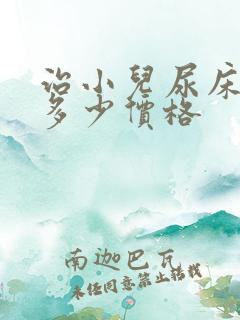 治小兒尿床
多少價格
南迦巴瓦
未经同意禁止转载